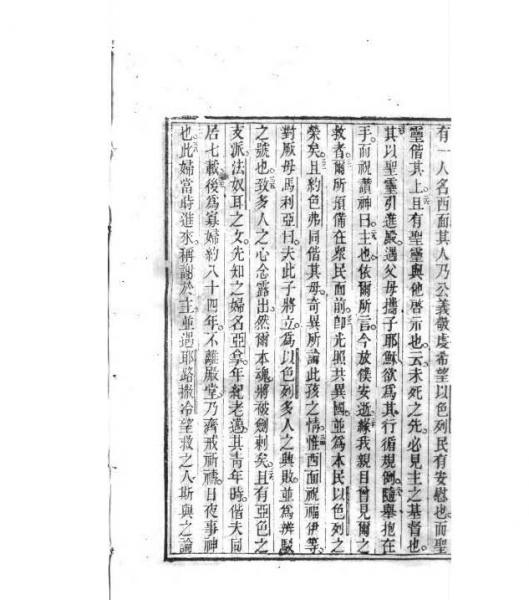 有一人名西面其人乃公義敬虔希望以色列民有安慰也而聖
靈偕其上且有聖靈與他啓示也云未死之先必見主之基督也
其以聖靈引進殿遇父母攜子耶穌欲爲其行循規例隨舉抱在
手而祝讚神曰主也依爾所言今放僕安逝緣我親目曾見爾之
救者爾所預備在衆民面前卽光照共異國並爲本民以色列之
榮矣且約色弗同偕其母奇異所論此孩之情惟西面祝福伊等
對厥母馬利亞曰夫此子將立爲以色列多人之興敗並爲辨駁
之號也致多人之心念露出然爾本魂將被劍刺矣且有亞色之
支派法奴耳之女先知之婦名亞拿年紀老邁其青年時偕夫同
居七載後爲寡婦約八十四年不離殿堂乃齋戒祈禱日夜事神
也此婦當時進來稱謝於主並遇耶路撒冷望救之人斯與之論